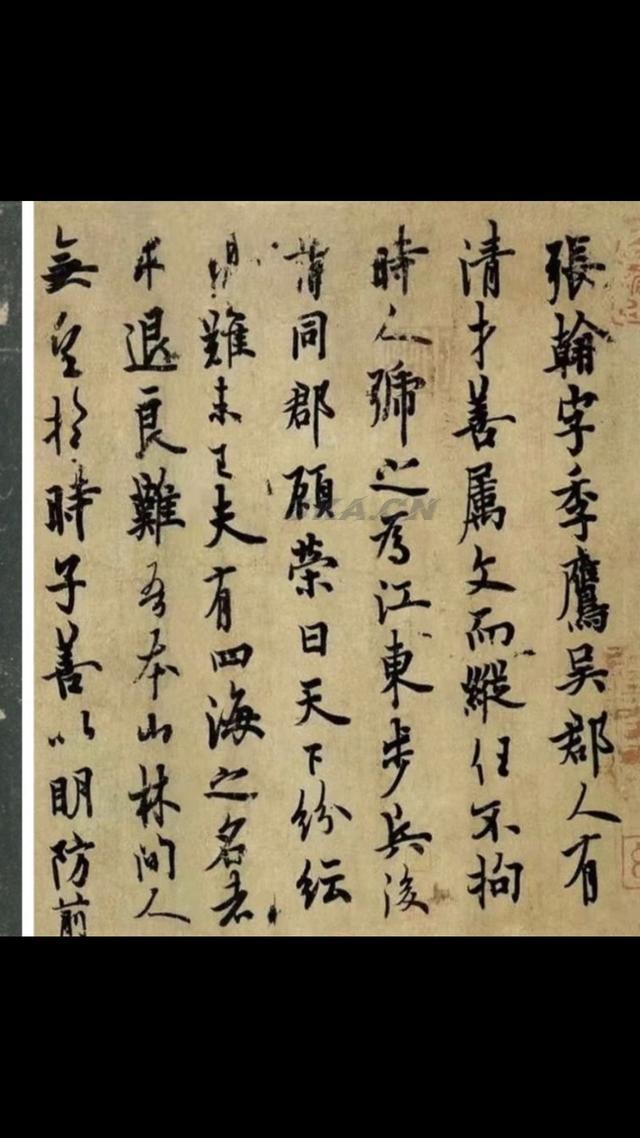 張翰字季鷹吳郡人有
清才善属文而縱任不拘
時人號之為江東步兵後
謂同郡顧榮曰天下紛紜
難未已夫有四海之名者
求退良難吾本山林間人
無望於時子善以明防前